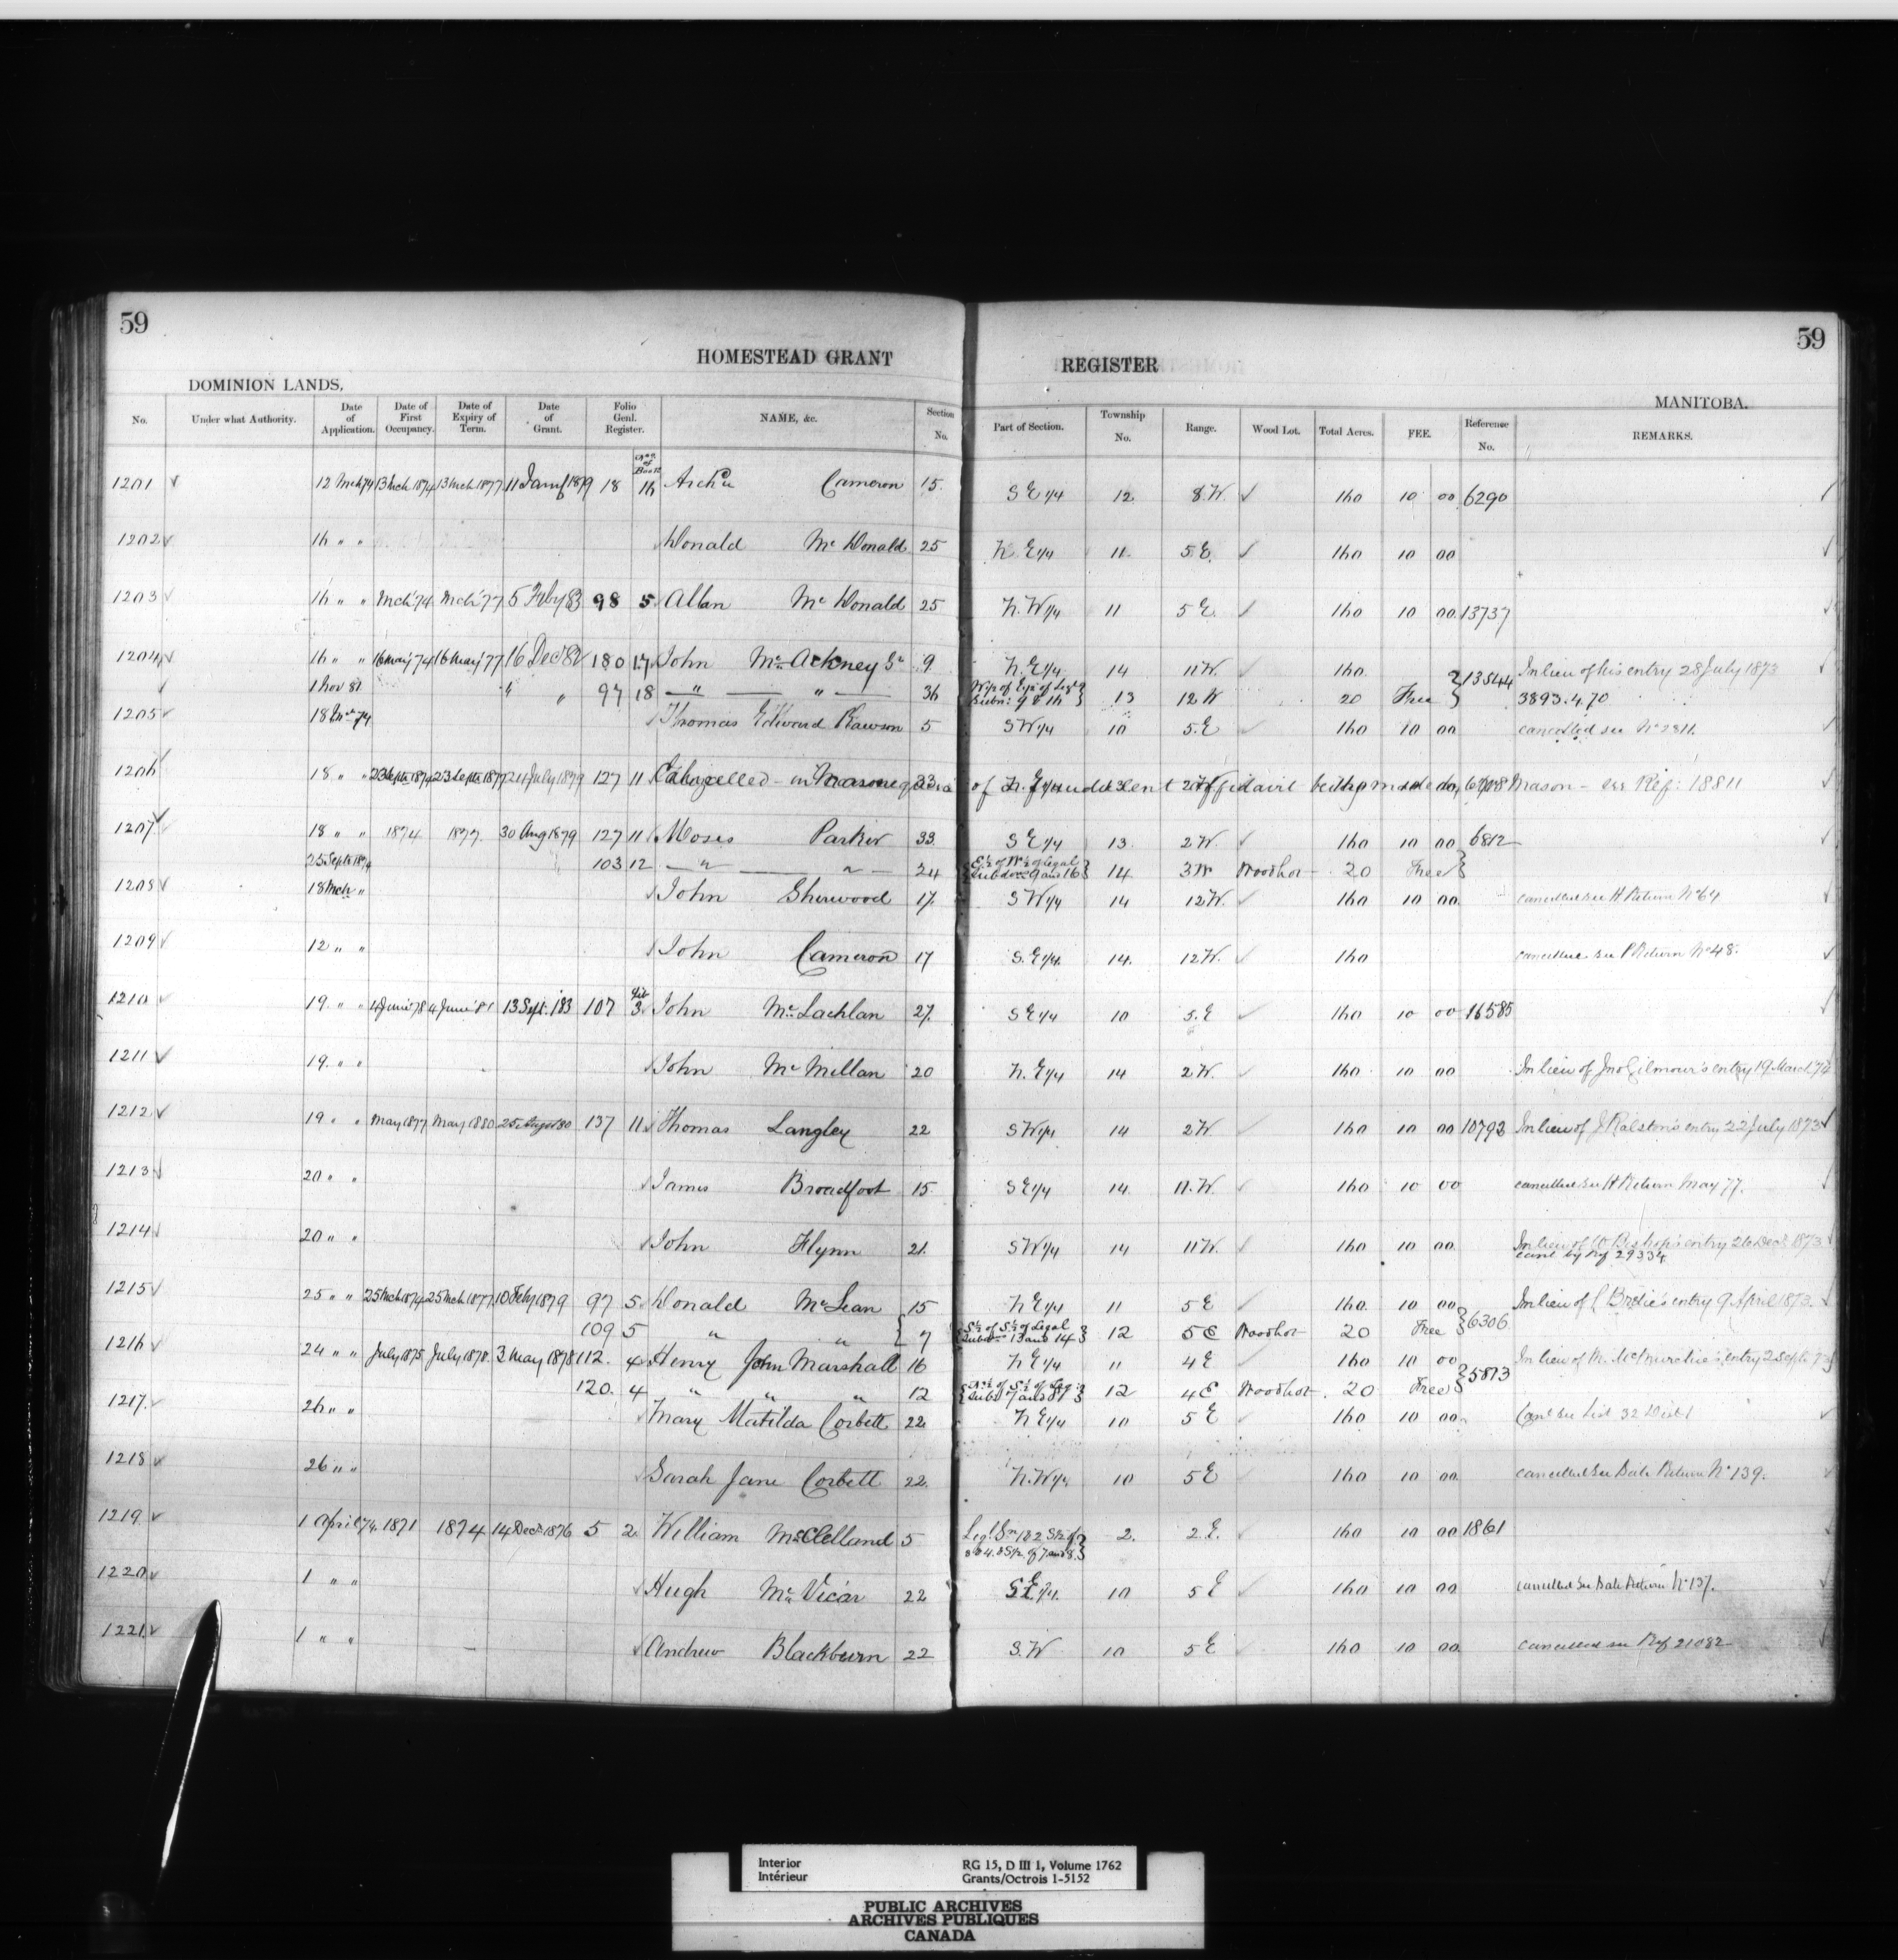 59
59
HOMESTEAD GRANT REGISTER
DOMINION LANDS.
MANITOBA.
No. Under what Authority. Date of Application. Date of First Occupancy. Date of Expiry of Term. Date of Grant. Folio Genl. Register. NAME, &c. Section No. Part of Section. Township No. Range. Wood Lot. Total Acres. FEE. Reference No. REMARKS.
1201 12 Mch 74 13 Mch 1874 13 Mch 1877 18 16 Cameron 15 S E 1/4 12 8 W. 160 10 00 6290
1202 16 " " Donald Mc Donald 25 N. E 1/4 11 5 E. 160 10 00
1203 16 " " Mch 74 Mch 77 5 Feby 83 98 5 Allan Mc Donald 25 N. W 1/4 11 5 E. 160 10 00 13737
1204 16 " " 16 May 74 16 May 77 16 Dec 82 180 17 John Mc Ackney Sr 9 N. E 1/4 14 11 W. 160 13544 In lieu of his entry 28 July 1873
1 Nov 81 " " 97 18 " " 36 13 12 W 20 Free 3893.4.70
1205 18 Mch 74 Thomas Edward Rawson 5 S W 1/4 10 5. E 160 10 00 cancelled see No 2811.
1206 18 " " 23 Septr 1874 23 Septr 1877 24 July 1879 127 11 Cancelled - in consequence of fraudulent affidavit being made by Mason - see Ref: 18811
1207 18 " " 1874 1877 30 Aug 1879 127 11 Moses Parker 33 S E 1/4 13 2 W. 160 10 00 6812
25 Septr 1874 103 12 " " 24 E 1/2 of W 1/2 of Legal Subdns 9 and 16 14 3 W Woodlot 20 Free
1208 18 Mch " John Sherwood 17 S W 1/4 14 12 W. 160 10 00 cancelled see H Return No 64
1209 12 " " John Cameron 17 S. E 1/4 14 12 W. 160 cancelled see P Return No 48.
1210 19 " " 4 June 78 4 June 81 13 Sept. 83 107 3 John Mc Lachlan 27 S E 1/4 10 5. E 160 10 00 16585
1211 19 " " John Mc Millan 20 N. E 1/4 14 2 W. 160 10 00 In lieu of Jno Gilmour's entry 19 March 74
1212 19 " " May 1877 May 1880 25 Augst 80 137 11 Thomas Langley 22 S W 1/4 14 2 W 160 10 00 10792 In lieu of J Ralston's entry 22 July 1873
1213 20 " " James Broadfoot 15 S E 1/4 14 11. W. 160 10 00 cancelled see H Return May 77.
1214 20 " " John Flynn 21 S W 1/4 14 11 W. 160 10 00 In lieu of W Bishop's entry 26 Decr 1873
canc by Ref 29334
1215 25 " " 25 Mch 1874 25 Mch 1877 10 Feby 1879 97 5 Donald Mc Lean 15 N E 1/4 11 5 E 160 10 00 6306 In lieu of entry 9 April 1873.
109 5 " " 7 S 1/2 of S 1/2 of Legal Subdns 13 and 14 12 5 E Woodlot 20 Free
1216 24 " " July 1875 July 1878 3 May 1878 112. 4 Henry John Marshall 16 N E 1/4 11 4 E 160 10 00 5873 In lieu of M. McMurchie's entry 2 Septr 73
120. 4 " " " 12 N 1/2 of S 1/2 of Leg: Subs 7 and 8 12 4 E Woodlot 20 Free
1217 26 " " Mary Matilda Corbett 22 N E 1/4 10 5 E 160 10 00 Canc see List 32 Dist 1
1218 26 " " Sarah Jane Corbett 22 N. W 1/4 10 5 E 160 10 00 cancelled see Sale Return No 139.
1219 1 April 74 1871 1874 14 Decr 1876 5 2 William McClelland 5 2. 2 E. 160 10 00 1861
1220 1 " " Hugh Mc Vicar 22 S E 1/4 10 5 E 160 10 00 cancelled see Sale Return No 137.
1221 1 " " Andrew Blackburn 22 S. W 10 5 E 160 10 00 cancelled see Ref 21082
Interior RG 15, D III 1, Volume 1762
Intérieur Grants/Octrois 1-5152
PUBLIC ARCHIVES
ARCHIVES PUBLIQUES
CANADA